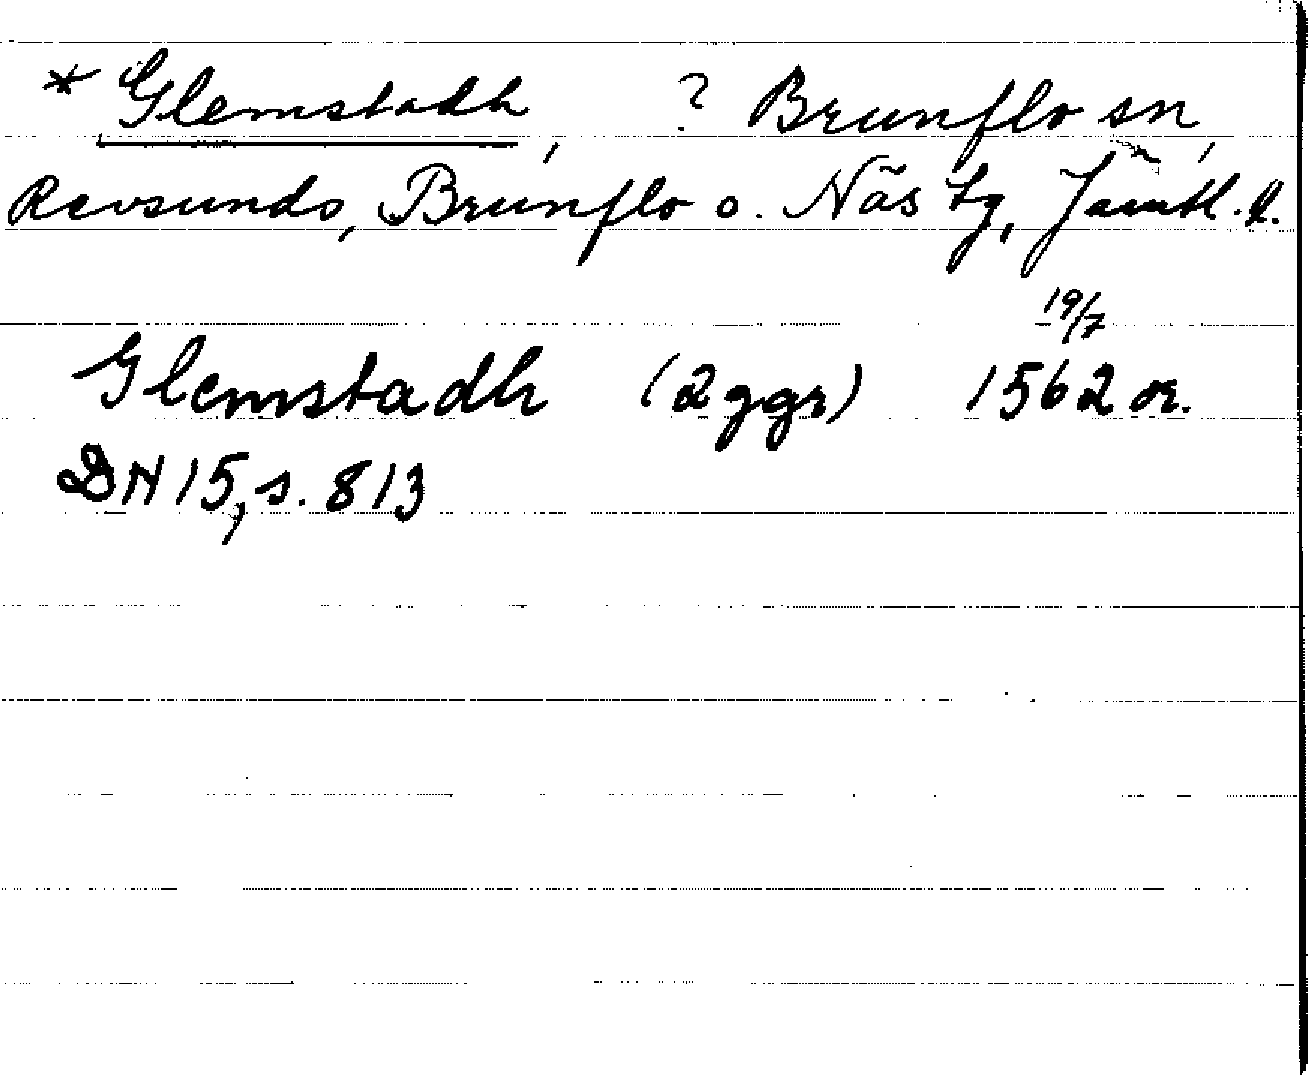 * Glemstadh, ? Brunflo sn,
Revsunds, Brunflo o. Näs tg, Jämtl. l.
19/7
Glemstadh (2 ggr) 1562 or.
DN 15, s. 813